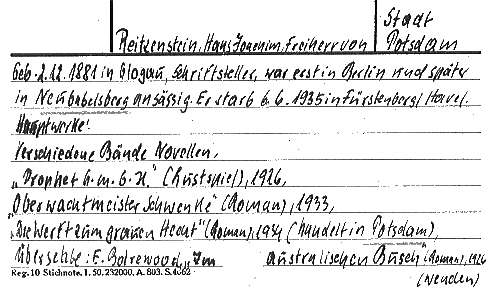 Stadt
Reitzenstein, Hans Joachim, Freiherr von Potsdam
Geb. 2.12.1881 in Glogau, Schriftsteller, war erst in Berlin und später
in Neubabelsberg ansässig. Er starb 6.6.1935 in Fürstenberg/Havel.
Hauptwerke:
Verschiedene Bände Novellen,
"Prophet G.m.b.H." (Lustspiel), 1926,
"Oberwachtmeister Schwenke" (Roman), 1933,
"Die Werft zum grauen Hecht" (Roman), 1934 (handelt in Potsdam),
Übersetzte: E. Bolrewood, "Im australischen Busch" (Roman), 1926
Reg. 10 Stichnote. 1. 50. 232000. A. 803. S. 4062